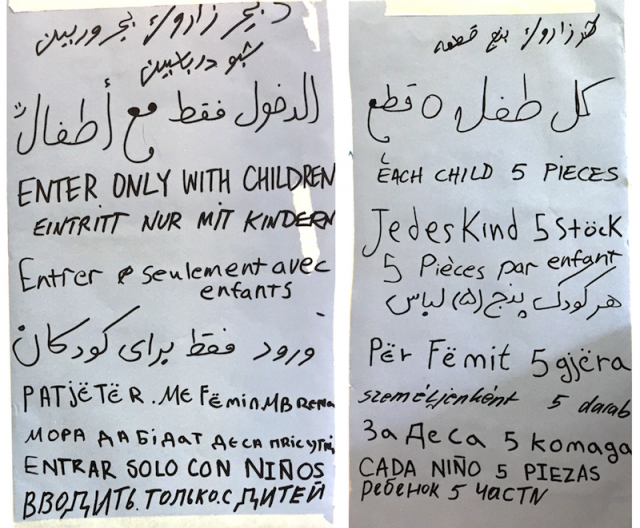 الدخول فقط مع أطفال
ENTER ONLY WITH CHILDREN
EINTRITT NUR MIT KINDERN
Entrer seulement avec
enfants
ورود فقط برای کودکان
PATJËTËR. ME FËMIN. MBRENA
МОРА ДА БІДАТ ДЕСА ПРІСУТНІ
ENTRAR SOLO CON NIÑOS
ВВОДИТЬ.ТОЛЬКО.С ДИТЕЙ
هر زاروك پنج قطعه
كل طفل ٥ قطع
EACH CHILD 5 PIECES
Jedes Kind 5 Stöck
5 Pièces par enfant
هر کودک پنج (۵) لباس
Për Fëmit 5 gjëra
személjenként 5 darab
За Деса 5 комада
CADA NIÑO 5 PIEZAS
Ребенок 5 ЧАСТN